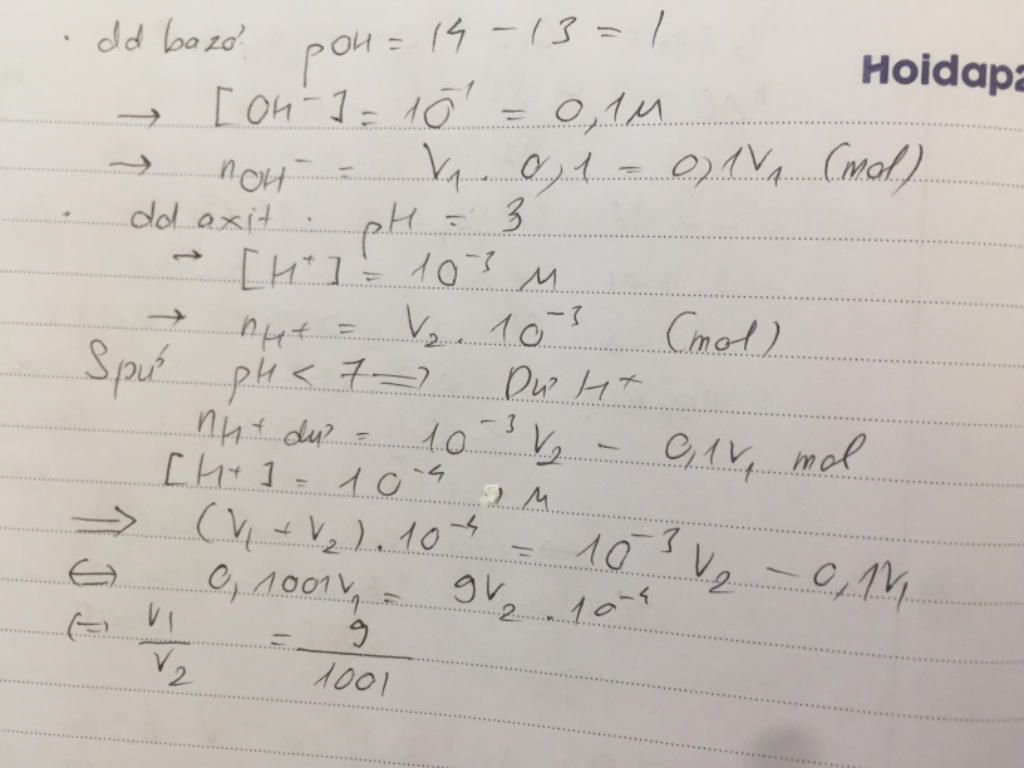 . dd bazơ: pOH = 14 - 13 = 1
Hoidap2
→ [OH⁻] = 10⁻¹ = 0,1M
→ nOH⁻ = V₁ . 0,1 = 0,1V₁ (mol)
. dd axit : pH = 3
→ [H⁺] = 10⁻³ M
→ nH⁺ = V₂ . 10⁻³ (mol)
Spứ pH < 7 => Dư H⁺
nH⁺ dư = 10⁻³V₂ - 0,1V₁ mol
[H⁺] = 10⁻⁴ M
=> (V₁ + V₂) . 10⁻⁴ = 10⁻³V₂ - 0,1V₁
<=> 0,1001V₁ = 9V₂ . 10⁻⁴
<=> V₁/V₂ = 9/1001